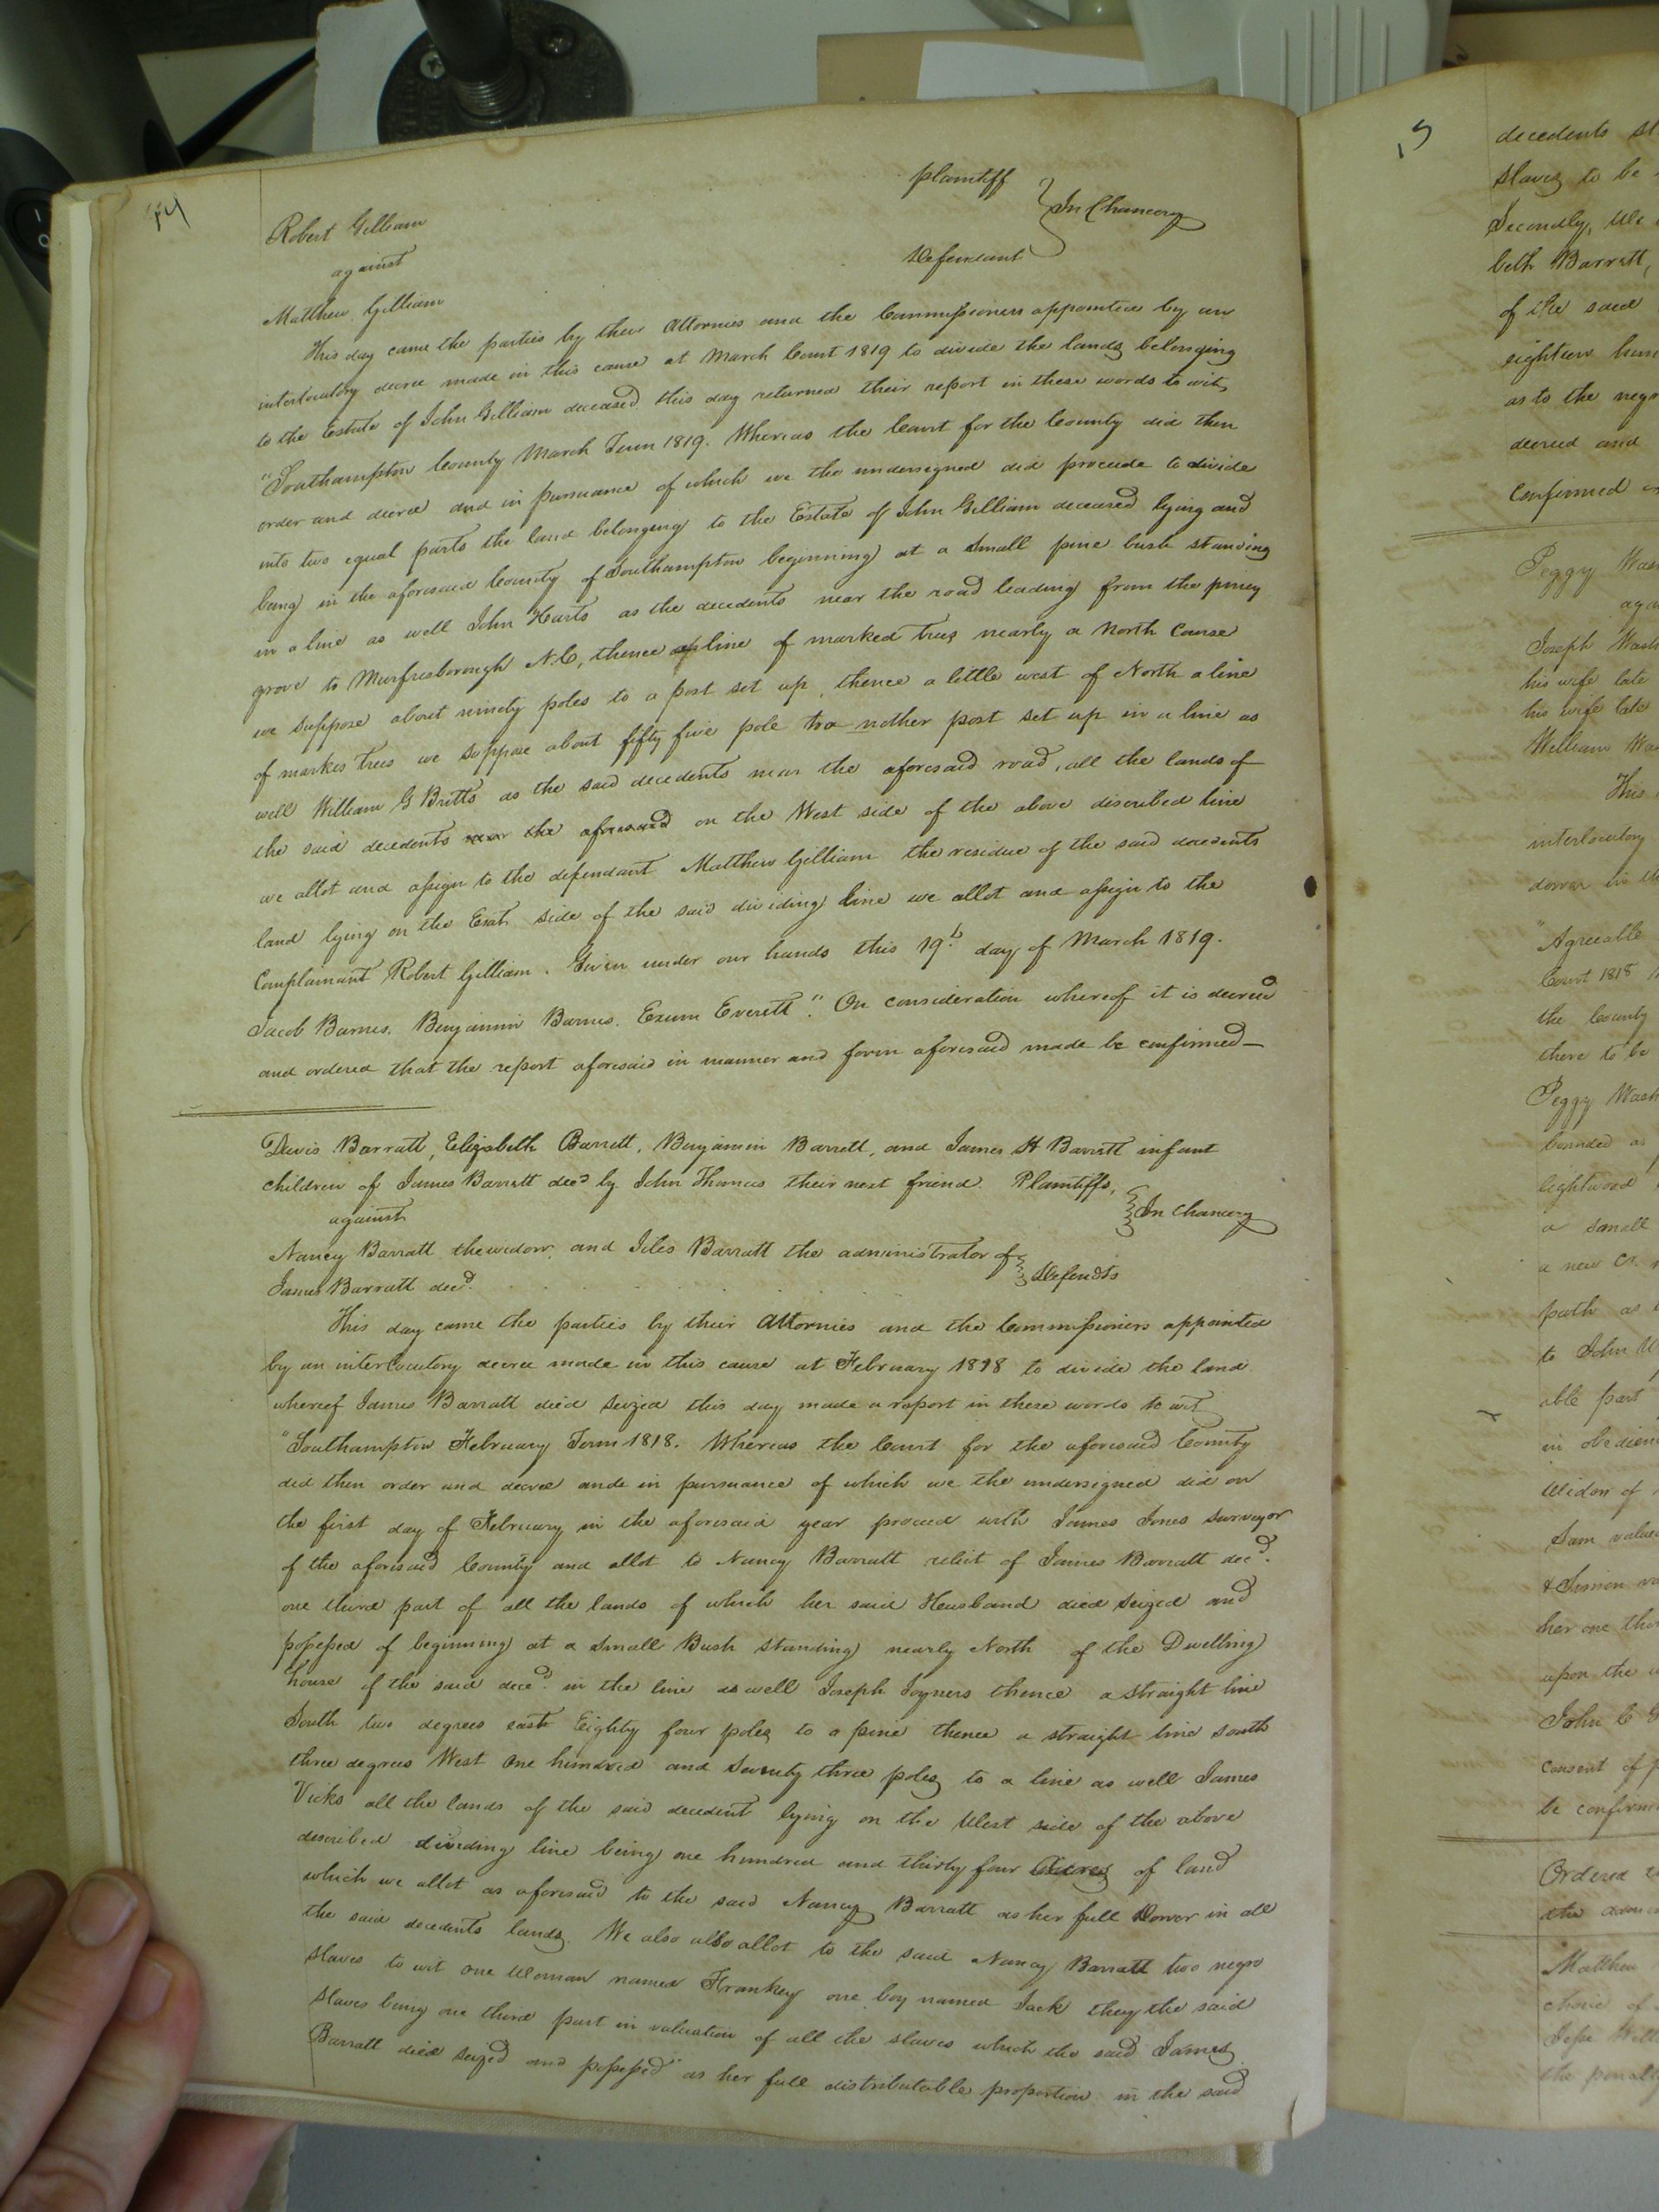 14
plaintiff
Robert Gilliam
In Chancery
against
Defendant
Matthew Gilliam
This day came the parties by their Attornies and the Commissioners appointed by an
interlocutory decree made in this cause at March Court 1819 to divide the lands belonging
to the Estate of John Gilliam deceased this day returned their report in these words to wit
"Southampton County March Term 1819. Whereas the Court for the County did then
order and decree and in pursuance of which we the undersigned did proceede to divide
into two equal parts the land belonging to the Estate of John Gilliam deceased lying and
being in the aforesaid County of Southampton beginning at a small pine bush standing
in a line as well John Harts as the decedents near the road leading from the piney
grove to Murfresborough N.C, thence a line of marked trees nearly a North Course
we suppose about ninety poles to a post set up, thence a little west of North a line
of markes trees we suppose about fifty five pole to a nother post set up in a line as
well William G Britts as the said decedents near the aforesaid road, all the lands of
the said decedents near the aforesaid on the West side of the above discribed line
we allot and assign to the defendant Matthew Gilliam the residue of the said decedents
land lying on the East side of the said dividing line we allot and assign to the
Complainant Robert Gilliam. Given under our hands this 19th day of March 1819.
Jacob Barnes, Benjamin Barnes. Exum Everett". On consideration whereof it is decreed
and ordered that the report aforesaid in manner and form aforesaid made be confirmed
Davis Barratt, Elizabeth Barrett, Benjamin Barrett, and James H Barrett infant
children of James Barratt decd by John Thomas their next friend. Plaintiffs,
against
In Chancery
Nancy Barratt the widow, and Jiles Barratt the administrator of
James Barratt decd.
Defendts
This day came the parties by their Attornies and the Commissioners appointed
by an interlocutory decree made in this cause at February 1818 to divide the land
whereof James Barratt died seized this day made a report in these words to wit
"Southampton February Term 1818. Whereas the Court for the aforesaid County
did then order and decree ande in pursuance of which we the undersigned did on
the first day of February in the aforesaid year proceed with James Jones surveyor
of the aforesaid County and allot to Nancy Barratt relict of James Barratt decd.
one third part of all the lands of which her said Husband died seized and
possessed of beginning at a small Bush standing nearly North of the Dwelling
house of the said decd. in the line as well Joseph Joyners thence a straight line
South two degrees east Eighty four poles to a pine thence a straight line south
three degrees West one hundred and seventy three poles to a line as well James
Vicks all the lands of the said decedent lying on the West side of the above
discribed dividing line being one hundred and thirty four Acres of land
which we allot as aforesaid to the said Nancy Barratt as her full Dower in all
the said decedents lands. We also also allot to the said Nancy Barratt two negro
slaves to wit one Woman named Frankey one boy named Jack they the said
slaves being one third part in valuation of all the slaves which the said James
Barratt died seized and possessed as her full distributable proportion in the said
15
decedents
slaves to be
Secondly, We
beth Barrett,
of the said
eighteen
as to the
decreed and
confirmed
Peggy
Joseph
his wife late
his wife late
William
This
interlocutory
dower in
"Agreeable
Court 1818
the County
there to be
Peggy
bounded as
lightwood
a small
a new
path as
to John
able part
in
Widow of
Sam
& Simon
her one
upon the
John C
consent of
be
Ordered
the
Matthew
choice of
Jesse
the